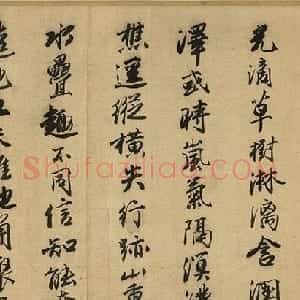 光滴草樹淋漓含潤
澤或時嵐氣隔溟濛
樵邏縱橫失行跡山重
水疊趣不同信知能
Shufaziliao.com